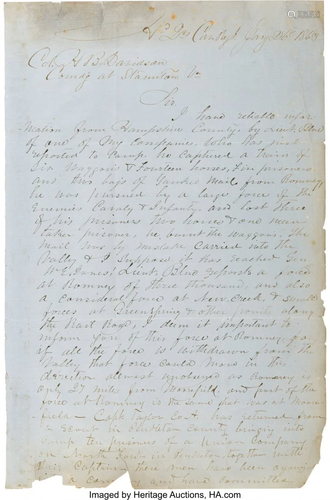 Hd Qrs Camp
Col H B Davidson
Comdg at Staunton Va
Sir
I have reliable infor
mation from Hampshire County by Lieut Blue
of one of my companies, who has just
reported to camp he captured a train of
six waggons & fourteen horses, six prisoners
and two bags of Yankee Mail from Romney
he was pursued by a large force of the
enemies Cavalry & Infantry and lost three
of his prisoner two horses & one man
taken prisoner, he burnt the waggons. The
Mail was by mistake carried into the
Valley & I suppose it has reached Gen
W E Jones, Lieut Blue reports a force
at Romney of three thousand, and also
a considerable force at New Creek, &
forces at Greenspring & other points along
the Rail Road, I deem it important to
inform you of this force at Romney, for
if all the force is withdrawn from the
Valley that force could move in
direction almost
only 27 miles from Moorefield, and part of the
force at Romney is the same that was at Moore
field - Capt Taylor has returned from
a scout in Pendleton county bringing into
camp ten prisoners of a Union Company
on North Fork in Pendleton together with
their Captain these men have been
a and have committed
Imaged by Heritage Auctions, HA.com